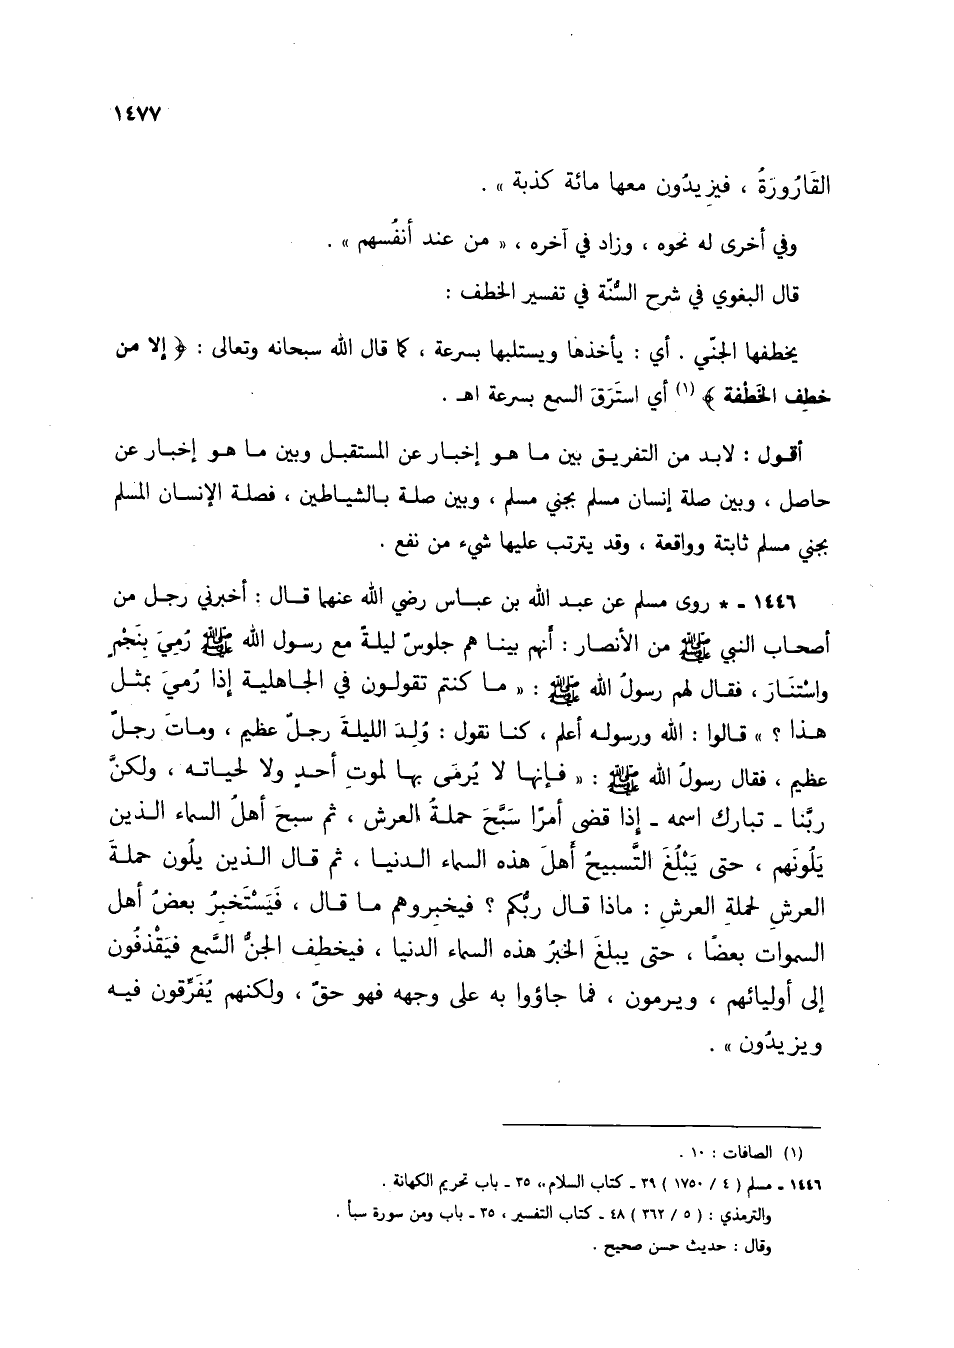 ١٤٧٧
القَارُورَةُ ، فيزِيدُون معها مائة كذبة » .
وفي أخرى له نحوه ، وزاد في آخره ، « من عند أنفُسهم » .
قال البغوي في شرح السُّنّة في تفسير الخطف :
يخطفها الجنّي . أي : يأخذها ويستلبها بسرعة ، كما قال الله سبحانه وتعالى : ﴿ إلا من
خطِف الخَطْفة ﴾ (١) أي استَرَقَ السمع بسرعة اهـ .
أقول : لابد من التفريق بين ما هو إخبار عن المستقبل وبين ما هو إخبار عن
حاصل ، وبين صلة إنسان مسلم بجني مسلم ، وبين صلة بالشياطين ، فصلة الإنسان المسلم
بجني مسلم ثابتة وواقعة ، وقد يترتب عليها شيء من نفع .
١٤٤٦ - * روى مسلم عن عبد الله بن عباس رضي الله عنهما قال : أخبرني رجل من
أصحاب النبي ﷺ من الأنصار : أنهم بينا هم جلوسٌ ليلةً مع رسول الله ﷺ رُمِيَ بِنَجْمٍ
واسْتَنَارَ ، فقال لهم رسولُ الله ﷺ : « ما كنتم تقولون في الجاهلية إذا رُميَ بمثل
هذا ؟ » قالوا : الله ورسوله أعلم ، كنا نقول : وُلِدَ الليلةَ رجلٌ عظيم ، وماتَ رجلٌ
عظيم ، فقال رسولُ الله ﷺ : « فإنها لا يُرمَى بها لموتِ أحدٍ ولا لحياته ، ولكنَّ
ربَّنا - تبارك اسمه - إذا قضى أمرًا سَبَّحَ حملةُ العرش ، ثم سبحَ أهلُ السماء الذين
يَلُونَهم ، حتى يَبْلُغَ التَّسبيحُ أهلَ هذه السماء الدنيا ، ثم قال الذين يلُون حملةَ
العرش لحملةِ العرشِ : ماذا قال ربُّكم ؟ فيخبروهم ما قال ، فَيَسْتَخبرُ بعضُ أهل
السموات بعضًا ، حتى يبلغَ الخبرُ هذه السماء الدنيا ، فيخطف الجنُّ السَّمع فيَقْذفُون
إلى أوليائهم ، ويرمون ، فما جاؤوا به على وجهه فهو حقّ ، ولكنهم يُفَرِّقون فيه
ويزيدُون » .
(١) الصافات : ١٠ .
١٤٤٦ - مسلم ( ٤ / ١٧٥٠ ) ٣٩ - كتاب السلام ، ٣٥ - باب تحريم الكهانة .
والترمذي : ( ٥ / ٣٦٢ ) ٤٨ - كتاب التفسير ، ٣٥ - باب ومن سورة سبأ .
وقال : حديث حسن صحيح .